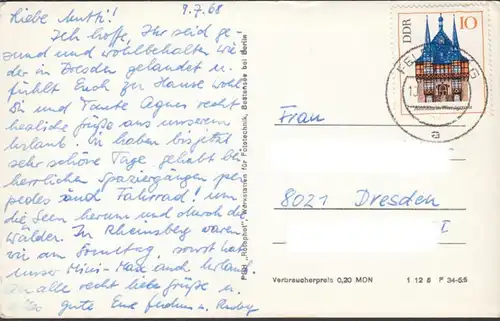 9.7.68
Liebe Mutti!
Ich hoffe, Ihr seid ge-
sund und wohlbehalten wie
der in Dresden gelandet u.
fühlt Euch zu Hause wohl.
Dir und Tante Agnes recht
herzliche Grüße aus unserem
Urlaub. Wir haben bis jetzt
sehr schöne Tage gehabt bei
herrlichen Spaziergängen per
pedes und Fahrrad! um
die Seen herum und durch die
Wälder. In Rheinsberg waren
wir am Sonntag, sonst hat
unser Mini-Max auch Urlaub!
an alle recht liebe Grüße u.
alles gute Eure u. Rudy
PGH "Rotophot", Werkstätten für Fototechnik, Bestensee bei Berlin
DDR 10
a
Frau
8021 Dresden
I
Verbraucherpreis 0,20 MDN 1 12 6 F 34-65